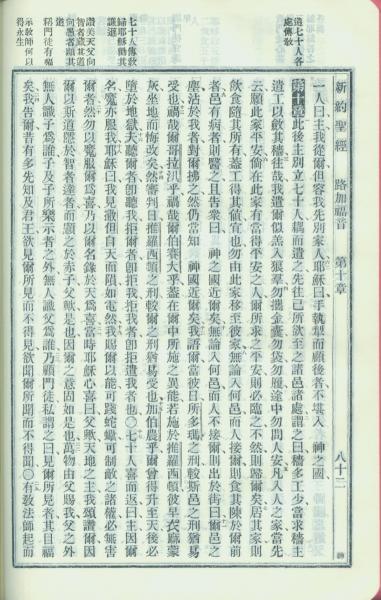 新約聖經 路加福音 第十章 八十二
遣七十人各
處傳敎
七十人傳敎
歸耶穌勸其
謙遜
讚美天父向
智者藏其道
向愚者顯其
道
門徒有福
示敎師何以
得永生
一人曰主我從爾但容我先別家人耶穌曰手執犂而顧後者不堪入 神之國
第十章 此後主別立七十人耦而遣之先往己所欲至之諸邑諸處謂之曰穡多工少當求穡主
遣工以斂其穡往哉我遣爾似羔入狼羣勿攜金囊勿袋勿履途中勿問人安凡入人之家當先
云願此家平安倘在此家有當得平安之人爾所求之平安則必臨之不然則歸爾矣居其家則
飲食隨其所有蓋工得其値宜也勿由此家移至彼家無論入何邑而人接爾則食其陳於爾前
者邑有病者則醫之且告衆曰 神之國近爾矣無論入何邑而人不接爾則出於街曰爾邑之
塵沾於我者對爾拂之然仍當知 神國近爾矣我語爾當彼日所多瑪之刑較斯邑之刑猶易
受也禍哉爾哥拉汛乎禍哉爾伯賽大乎蓋在爾中所施之異能若施於推羅西頓彼早衣麻蒙
灰坐地而悔改矣然審判日推羅西頓之刑較爾之刑猶易受也加伯農乎爾曾得升至天後必
墮於地獄矣聽爾者卽聽我拒爾者卽拒我拒我者卽拒遣我者也〇七十人喜而返曰主因爾
名魔亦服我耶穌曰我見撒但自天而隕如電然我賜爾以能可踐蛇蠍可制敵之諸權必無害
爾者然勿以魔服爾爲喜乃以爾名錄於天爲喜當時耶穌心喜曰父歟天地之主我頌讚爾因
爾以斯道隱於智者達者而顯之於赤子父歟是也因爾之意固如是也萬物由父賜我父之外
無人識子爲誰子及子所樂示者之外無人識父爲誰乃顧門徒私謂之曰見爾所見者其目福
矣我告爾昔有多先知及君王欲見爾所見而不得見欲聞爾所聞而不得聞〇有敎法師起而